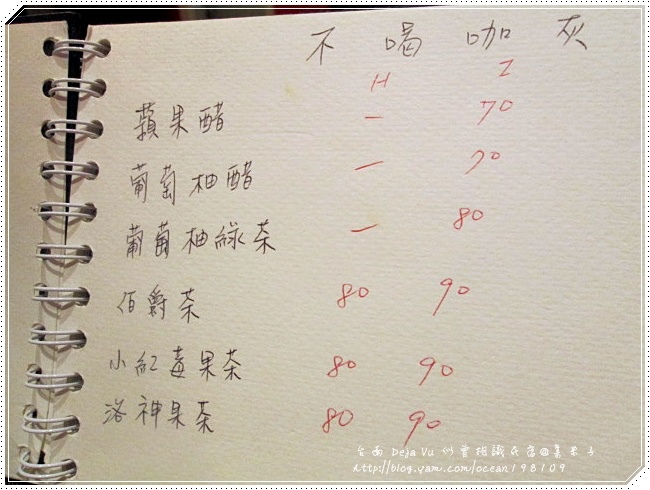 不喝咖灰
H I
蘋果醋 — 70
葡萄柚醋 — 70
葡萄柚綠茶 — 80
伯爵茶 80 90
小紅莓果茶 80 90
洛神果茶 80 90
台南 Deja Vu 似曾相識民宿@
http://blog.yam.com/ocean198109